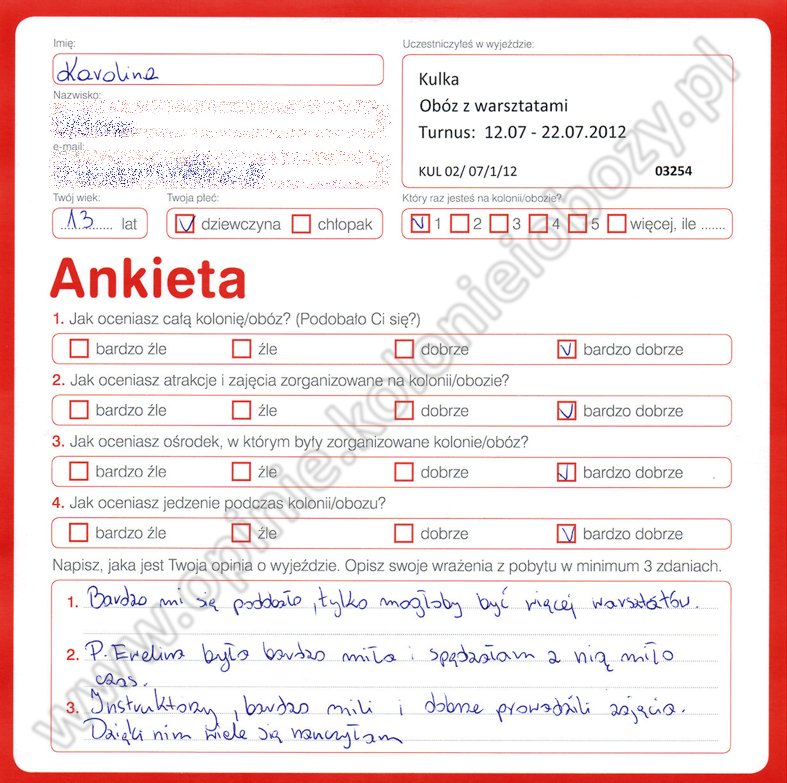 Imię:
Uczestniczyłeś w wyjeździe:
Karolina
Kulka
Obóz z warsztatami
Turnus: 12.07 - 22.07.2012
KUL 02/ 07/1/12 03254
Nazwisko:
e-mail:
Twój wiek: Twoja płeć: Który raz jesteś na kolonii/obozie?
13 lat dziewczyna chłopak 1 2 3 4 5 więcej, ile .......
Ankieta
1. Jak oceniasz całą kolonię/obóz? (Podobało Ci się?)
bardzo źle źle dobrze bardzo dobrze
2. Jak oceniasz atrakcje i zajęcia zorganizowane na kolonii/obozie?
bardzo źle źle dobrze bardzo dobrze
3. Jak oceniasz ośrodek, w którym były zorganizowane kolonie/obóz?
bardzo źle źle dobrze bardzo dobrze
4. Jak oceniasz jedzenie podczas kolonii/obozu?
bardzo źle źle dobrze bardzo dobrze
Napisz, jaka jest Twoja opinia o wyjeździe. Opisz swoje wrażenia z pobytu w minimum 3 zdaniach.
1. Bardzo mi się poddobało, tylko mogłoby być więcej warsztatów.
2. P. Ewelina była bardzo miła i spędzałam z nią miło
czas.
3. Instruktorzy, bardzo mili i dobrze prowadzili zajęcia.
Dzięki nim wiele się nauczyłam
www.opinie.kolonieiobozy.pl